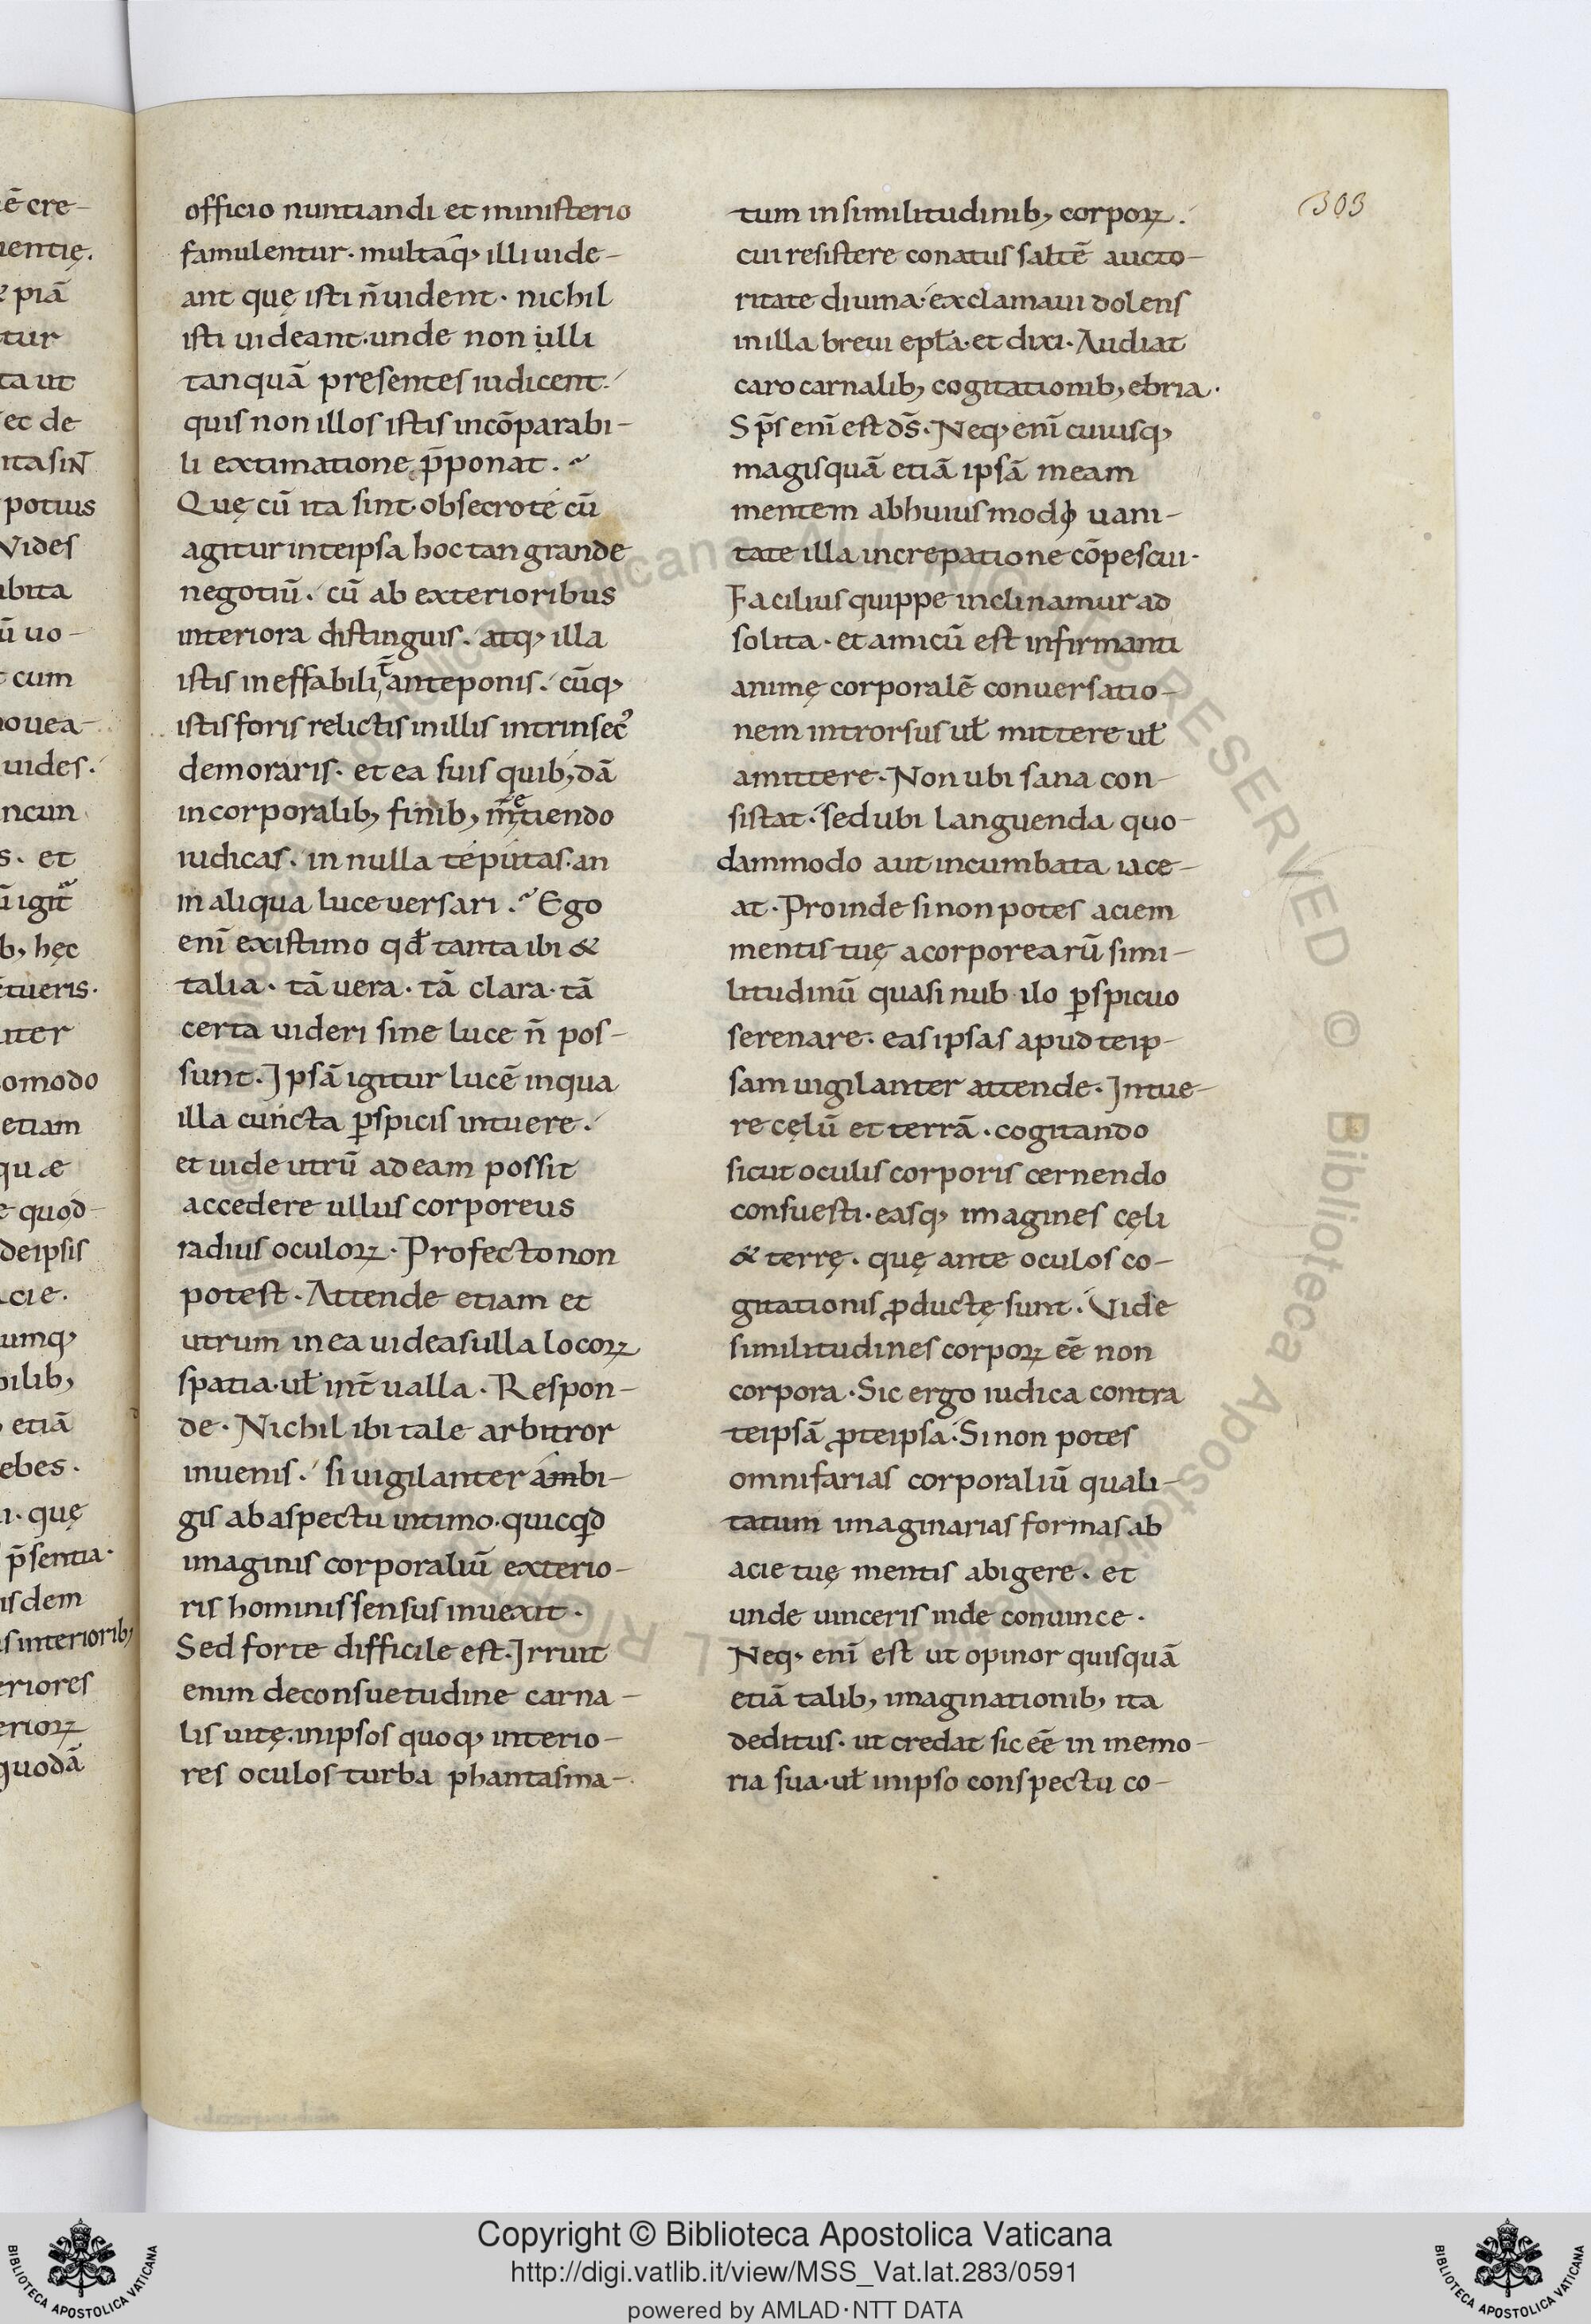 303
officio nuntiandi et ministerio
famulentur. multaq; illi uide-
ant quę isti n̄ uident. nichil
isti uideant. unde non ulli
tanquā presentes iudicent.
quis non illos istis incōparabi-
li extimatione p̄ponat.
Quę cū ita sint. obsecro te cū
agitur inteipsa hoc tan grande
negotiū. cū ab exterioribus
interiora distinguis. atq; illa
istis ineffabilit̄ anteponis. cūq;
istis foris relictis inillis intrinsec᾿
demoraris. et ea suis quib;dā
incorporalib; finib; mętiendo
iudicas. in nulla te putas. an
in aliqua luce uersari. Ego
enī existimo qđ tanta ibi &
talia. tā uera. tā clara. tā
certa uideri sine luce n̄ pos-
sunt. Ipsā igitur lucē inqua
illa cuncta ꝑspicis intuere.
et uide utrū ad eam possit
accedere ullus corporeus
radius oculoꝝ. Profecto non
potest. Attende etiam et
utrum in ea uideas ulla locoꝝ
spatia. ul̄ int̄ualla. Respon-
de. Nichil ibi tale arbitror
inuenis. si uigilanter ambi-
gis ab aspectu intimo. quicqd
imaginis corporaliū exterio-
ris hominis sensus inuexit.
Sed forte difficile est. Irruit
enim deconsuetudine carna-
lis uitę. inipsos quoq; interio-
res oculos turba phantasma-
tum insimilitudinib; corpoꝝ.
cui resistere conatus saltē aucto-
ritate diuina. exclamaui dolens
inilla breui epl̄a. et dixi. Audiat
caro carnalib; cogitationib; ebria.
Sp̄s enī est d̄s. Neq; enī cuiusq;
magis quā etiā ipsā meam
mentem abhuiusmodi uani-
tate illa increpatione cōpescui.
Facilius quippe inclinamur ad
solita. et amicū est infirmanti
animę corporalē conuersatio-
nem introrsus ul̄ mittere ul̄
amittere. Non ubi sana con-
sistat. sed ubi languenda quo-
dammodo aut incumbat a iace-
at. Proinde si non potes aciem
mentis tuę acorporearū simi-
litudinū quasi nubilo ꝑspicuo
serenare. eas ipsas apud teip-
sam uigilanter attende. Intue-
re cęlū et terrā. cogitando
sicut oculis corporis cernendo
consuesti. easq; imagines cęli
& terrę. quę ante oculos co-
gitationis ꝓductę sunt. Vide
similitudines corpoꝝ eē non
corpora. Sic ergo iudica contra
teipsā ꝓteipsa. Si non potes
omnifarias corporaliū quali-
tatum imaginarias formas ab
acie tuę mentis abigere. et
unde uinceris inde conuince.
Neq; enī est ut opinor quisquā
etiā talib; imaginationib; ita
deditus. ut credat sic eē in memo-
ria sua. ul̄ inipso conspectu co-
Copyright © Biblioteca Apostolica Vaticana
http://digi.vatlib.it/view/MSS_Vat.lat.283/0591
powered by AMLAD·NTT DATA
BIBLIOTECA APOSTOLICA VATICANA
BIBLIOTECA APOSTOLICA VATICANA